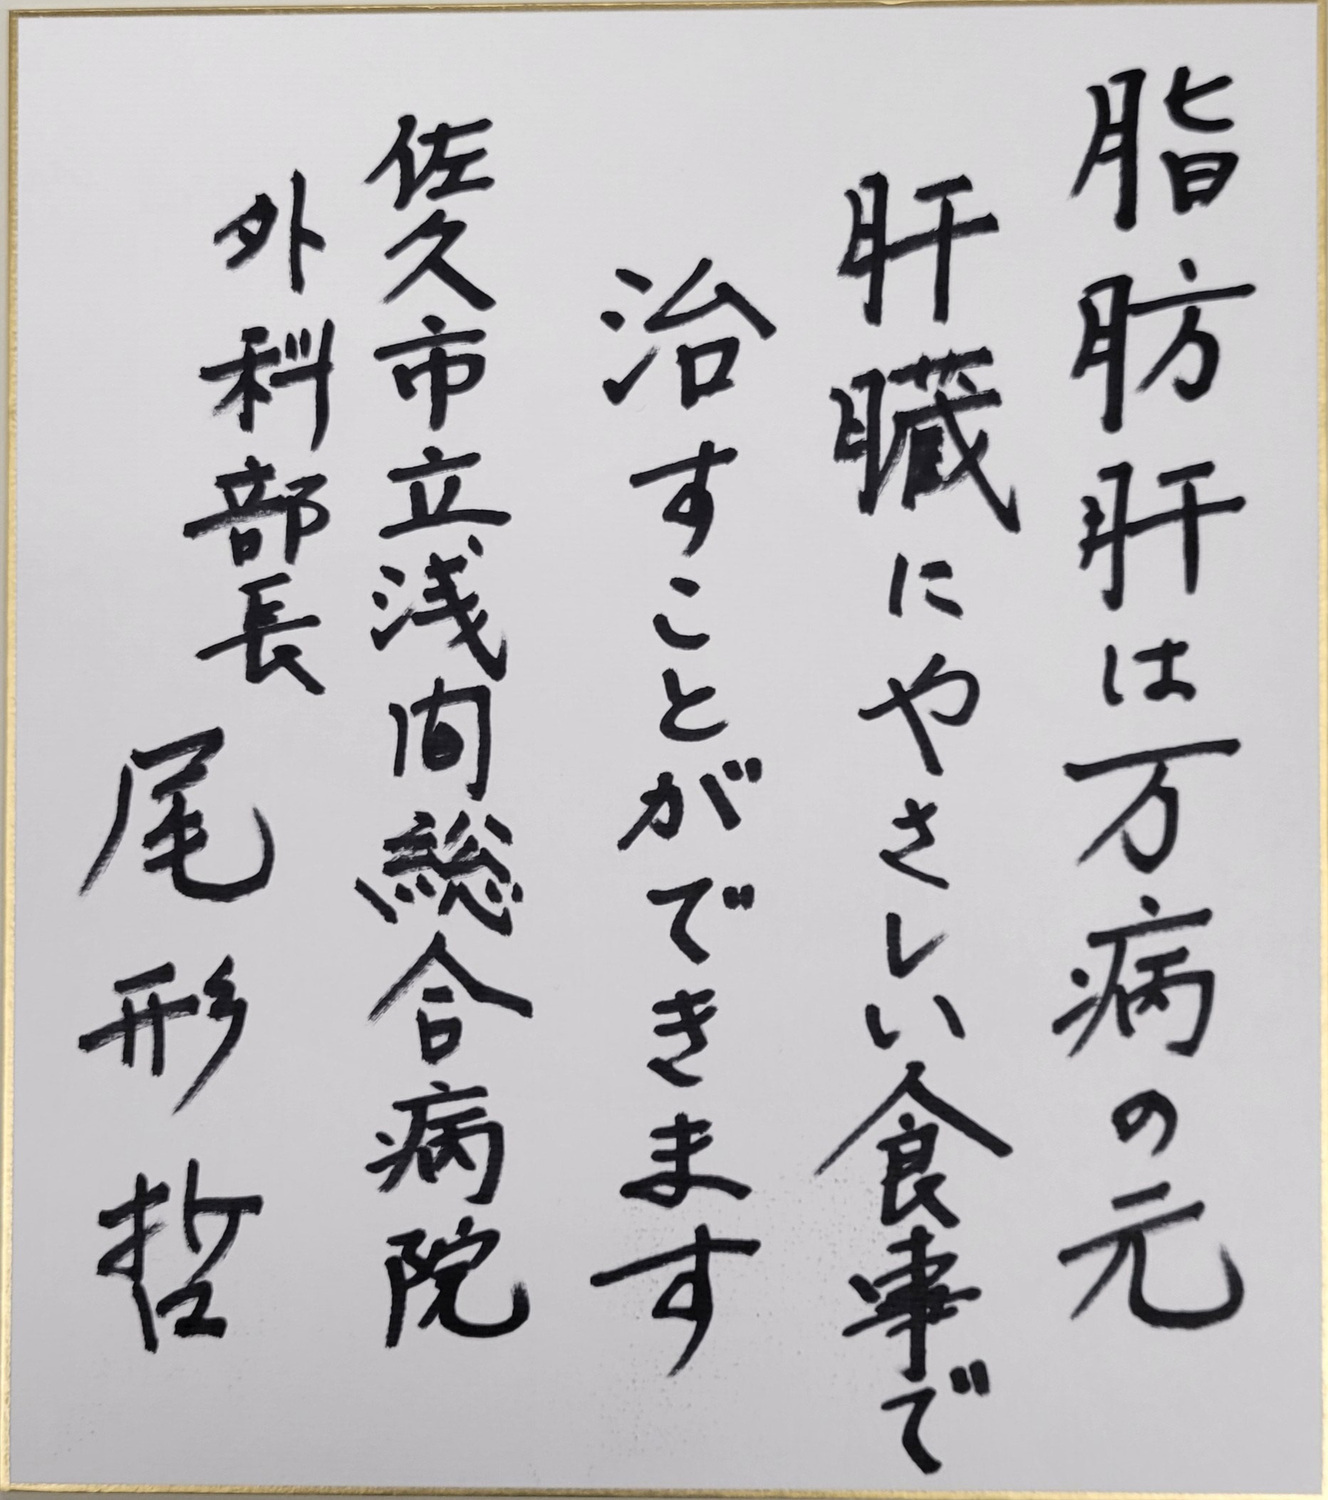 脂肪肝は万病の元
肝臓にやさしい食事で
治すことができます
佐久市立浅間総合病院
外科部長
尾形哲